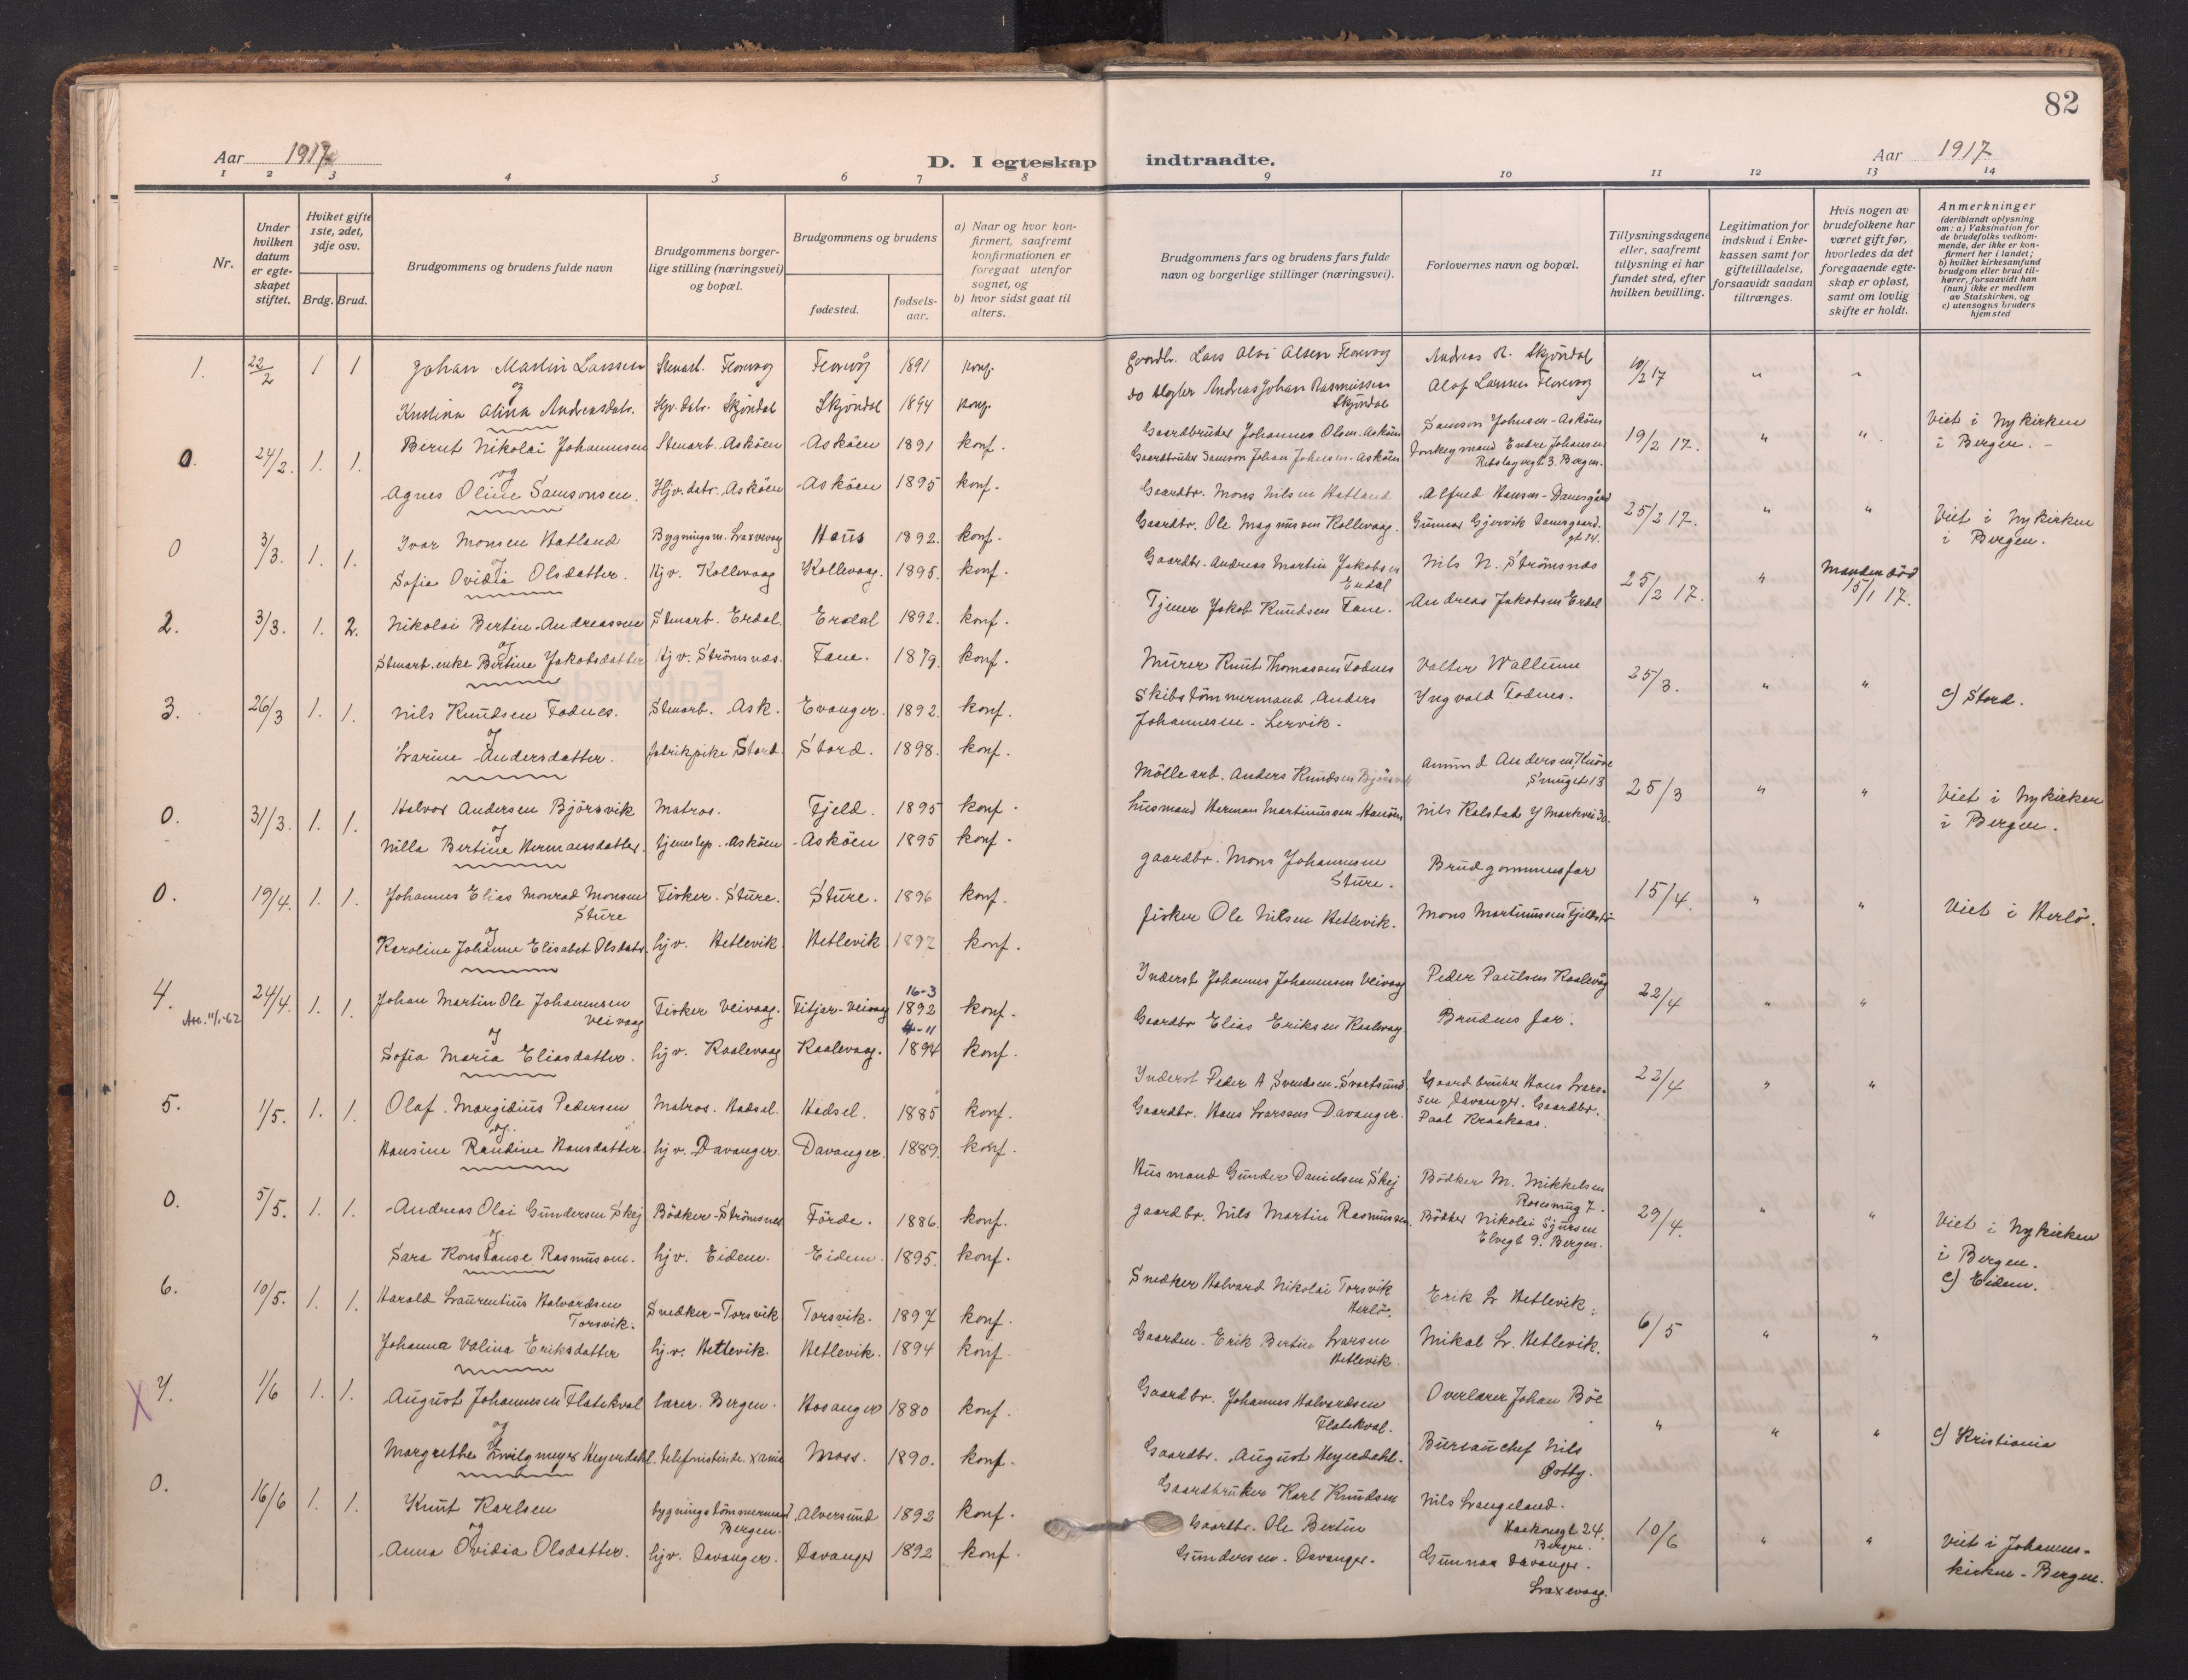 82
Aar 1917
D. I egteskap indtraadte.
Aar 1917
1 2 3 4 5 6 7 8 9 10 11 12 13 14
Nr.
Under hvilken datum er egteskapet stiftet.
Hviket gifte 1ste, 2det, 3dje osv.
Brdg. Brud.
Brudgommens og brudens fulde navn
Brudgommens borgerlige stilling (næringsvei) og bopæl.
Brudgommens og brudens
fødested.
fødsels-aar.
a) Naar og hvor konfirmert, saafremt konfirmationen er foregaat utenfor sognet, og
b) hvor sidst gaat til alters.
Brudgommens fars og brudens fars fulde navn og borgerlige stillinger (næringsvei).
Forlovernes navn og bopæl.
Tillysningsdagene eller, saafremt tillysning ei har fundet sted, efter hvilken bevilling.
Legitimation for indskud i Enkekassen samt for giftetilladelse, forsaavidt saadan tiltrænges.
Hvis nogen av brudefolkene har været gift før, hvorledes da det foregaaende egteskap er opløst, samt om lovlig skifte er holdt.
Anmerkninger
(deriblandt oplysning om: a) Vaksination for de brudefolks vedkommende, der ikke er konfirmert her i landet; b) hvilket kirkesamfund brudgom eller brud tilhører, forsaavidt han (hun) ikke er medlem av Statskirken, og c) utensogns bruders hjemsted
1. 22/2 1 1 Johan Martin Larssen Stenarb. Florvaag Florvåg 1891 konf. Gaardbr. Lars Olai Olsen Florvaag Andreas R. Skjöndal 18/2 17 " "
og
Kristina Alina Andreasdatr. Hjv. datr. Skjöndal Skjöndal 1894 konf. do Andreas Johan Rasmussen Skjöndal Olaf Larssen Florvaag
0. 24/2. 1. 1. Bernt Nikolai Johannesen Stenarb. Asköen Asköen 1891 konf. Gaardbruker Johannes Olsen Asköen Samson Johnsen - Asköen 19/2 17. " " Viet i Nykirken i Bergen. -
og
Agnes Oline Samsonsen. Hjv. datr. Asköen Asköen 1895 konf. Gaardbruker Samson Johan Johnsen. Asköen Donkeymand Endre Johansen 3. Bergen.
0 3/3. 1. 1. Ivar Monsen Hatland Bygningsm. Laxevaag Haus 1892. konf. Gaardbr. Mons Nilsen Hatland Alfred Hansen - Damsgård 25/2 17. " " Viet i Nykirken i Bergen.
og
Sofia Ovidia Olsdatter. Hjv. Kollevaag Kollevaag. 1895. konf. Gaardbr. Ole Magnussen Kollevaag. Gunnar Gjervik Damsgaard. gt. 14.
2. 3/3. 1. 2. Nikolai Bertin Andreassen Stenarb. Erdal. Erdal 1892. konf. Gaardbr. Andreas Martin Jakobsen Erdal Nils N. Strömsnes 25/2 17. " Manden död 15/1 17.
og
Stenarb. enke Bertine Jakobsdatter Hjv. Strömsnes. Fane. 1879. konf. Tjener Jakob Knudsen Fane. Andreas Jakobsen Erdal
3. 26/3 1. 1. Nils Knudsen Fodnes. Stenarb. Ask. Evanger. 1892. konf. Murer Knut Thomassen Fodnes Valter Wallum 25/3. " " c) Stord.
og
Larine Andersdatter. fabrikpike Stord. Stord. 1898. konf. Skibstömmermand Anders Johannesen - Lervik. Yngvald Fodnes.
0. 31/3. 1. 1. Halvor Andersen Björsvik Matros. Fjeld. 1895 konf. Möllearb. Anders Knudsen Björsvik Amund Andersen, Knöse Smuget 13 25/3 " " Viet i Nykirken i Bergen.
og
Nilla Bertine Hermansdatter. tjenestep. Asköen Asköen 1895 konf. Husmand Herman Martinussen Hanöen Nils Kalstad Y Markvei 30.
0. 19/4. 1. 1. Johannes Elias Monrad Monsen Sture Fisker. Sture. Sture. 1896 konf. gaardbr. Mons Johannesen Sture. Brudgommens far 15/4. " " Viet i Herlö.
og
Karoline Johanne Elisabet Olsdatr. hjv. Hetlevik. Hetlevik 1897 konf. fisker Ole Nilsen Hetlevik. Mons Martinussen
4. 24/4. 1. 1. Johan Martin Ole Johannesen Veivaag Fisker Veivaag. Fitjar - Veivaag 16-3 1892 konf. Inderst Johannes Johannesen Veivaag Peder Paulsen Kaalevåg 22/4 " "
og
Sofia Maria Eliasdatter. hjv. Kaalevaag Kaalevaag. 4-11 1894 konf. Gaardbr Elias Eriksen Kaalevaag Brudens far.
5. 1/5. 1. 1. Olaf Margidius Pedersen Matros. Hadsel. Hadsel. 1885 konf. Inderst Peder A Svendsen. Svartsund Gaardbruker Hans Larssen Davanger. Gaardbr. 22/4 " "
og
Hansine Randine Hansdatter. hjv. Davanger. Davanger. 1889. konf. Gaardbr. Hans Larssen Davanger. Paal Kraakaas.
0. 5/5. 1. 1. Andreas Olai Gundersen Skej Bödker - Strömsnes Förde. 1886. konf. Husmand Gunder Danielsen Skej Bödker M. Mikkelsen Rosesmug 7. 29/4. " " Viet i Nykirken i Bergen. c) Eidem.
og
Sara Konstanse Rasmussen. hjv. Eidem. Eidem. 1895. konf. gaardbr. Nils Martin Rasmussen. Bödker Nikolai Sjursen Elvegt 9. Bergen.
6. 10/5. 1. 1. Harald Laurentius Halvardsen Torsvik. Snedker - Torsvik Torsvik. 1897 konf. Snedker Halvard Nikolai Torsvik Herlö. Erik L Hetlevik. 6/5 " "
Johanna Valina Eriksdatter hjv. Hetlevik. Hetlevik. 1894 konf. Gaardm. Erik Bertin Larsen Hetlevik. Mikal L. Hetlevik.
X 7. 1/6 1. 1. August Johannesen Flatekval lærer. Bergen. Hosanger 1880 konf. Gaardbr. Johannes Halvardsen Flatekval. Overlærer Johan Böe " " " c) Kristiania
og
Margrethe Zwilgmeyer Heyerdahl. telefonistinde. Xania Moss. 1890. konf. Gaardbr. August Heyerdahl. Bureauchef Nils Østby.
0. 16/6 1. 1. Knut Karlsen bygningstömmermand Bergen. Alversund 1892 konf. Gaardbruker Karl Knudsen Nils Langeland. Haakonsgt 24. Bergen. 10/6 " " Viet i Johanneskirken - Bergen.
og
Anna Ovidia Olsdatter. hjv. Davanger. Davanger 1892 konf. Gaardbr. Ole Bertin Gundersen. Davanger. Gunnar Davanger. Laxevaag.